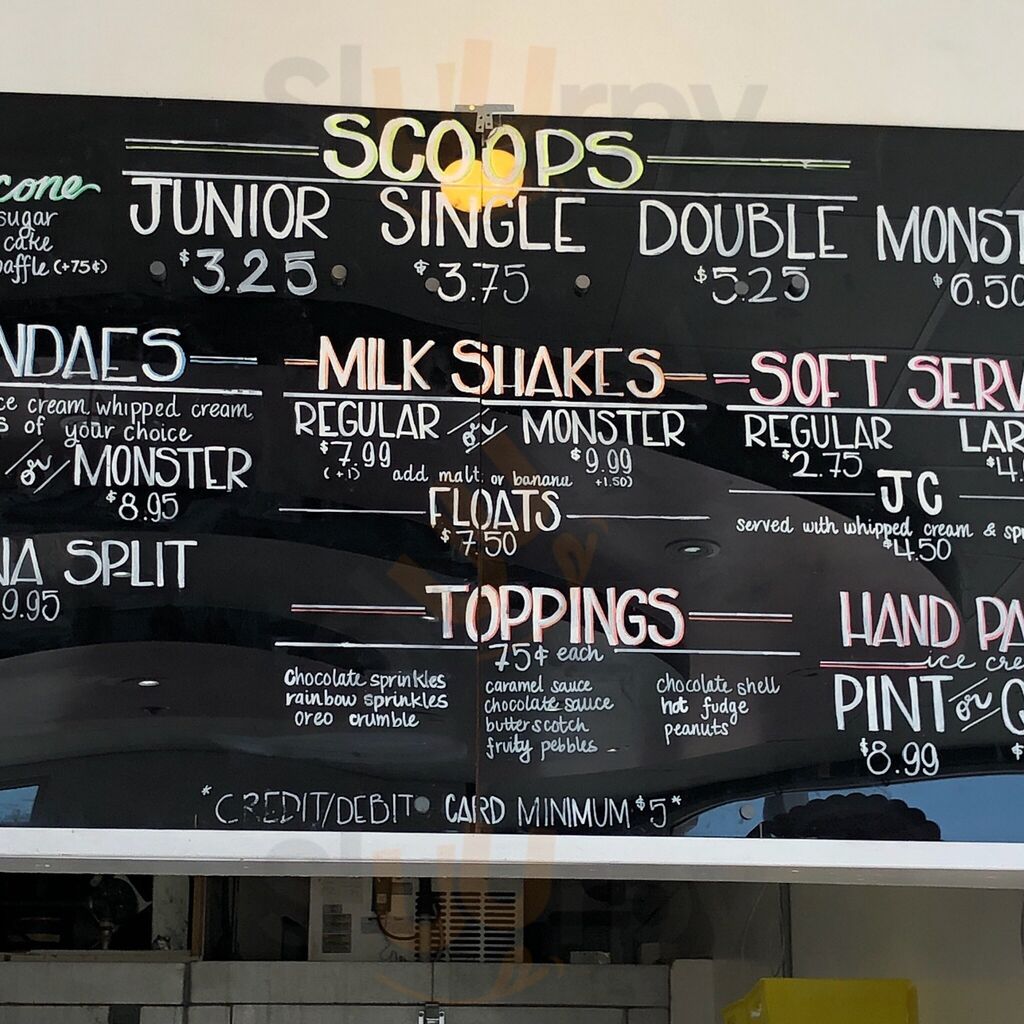 slurrpy
SCOOPS
cone
sugar
cake
JUNIOR SINGLE DOUBLE MONST
$3.25 $3.75 $5.25 $6.50
affle (+75¢)
NDAES
ce cream, whipped cream,
s of your choice
or MONSTER
$8.95
NA SPLIT
9.95
MILK SHAKES
REGULAR or MONSTER
$7.99 $9.99
(+1) add malt or banana +1.50)
FLOATS
$7.50
SOFT SERV
REGULAR LAR
$2.75 $4.
JC
served with whipped cream & spr
$4.50
TOPPINGS
75¢ each
chocolate sprinkles
rainbow sprinkles
oreo crumble
caramel sauce
chocolate sauce
butterscotch
fruity pebbles
chocolate shell
hot fudge
peanuts
HAND PA
ice cre
PINT or
$8.99 $
*CREDIT/DEBIT CARD MINIMUM $5*